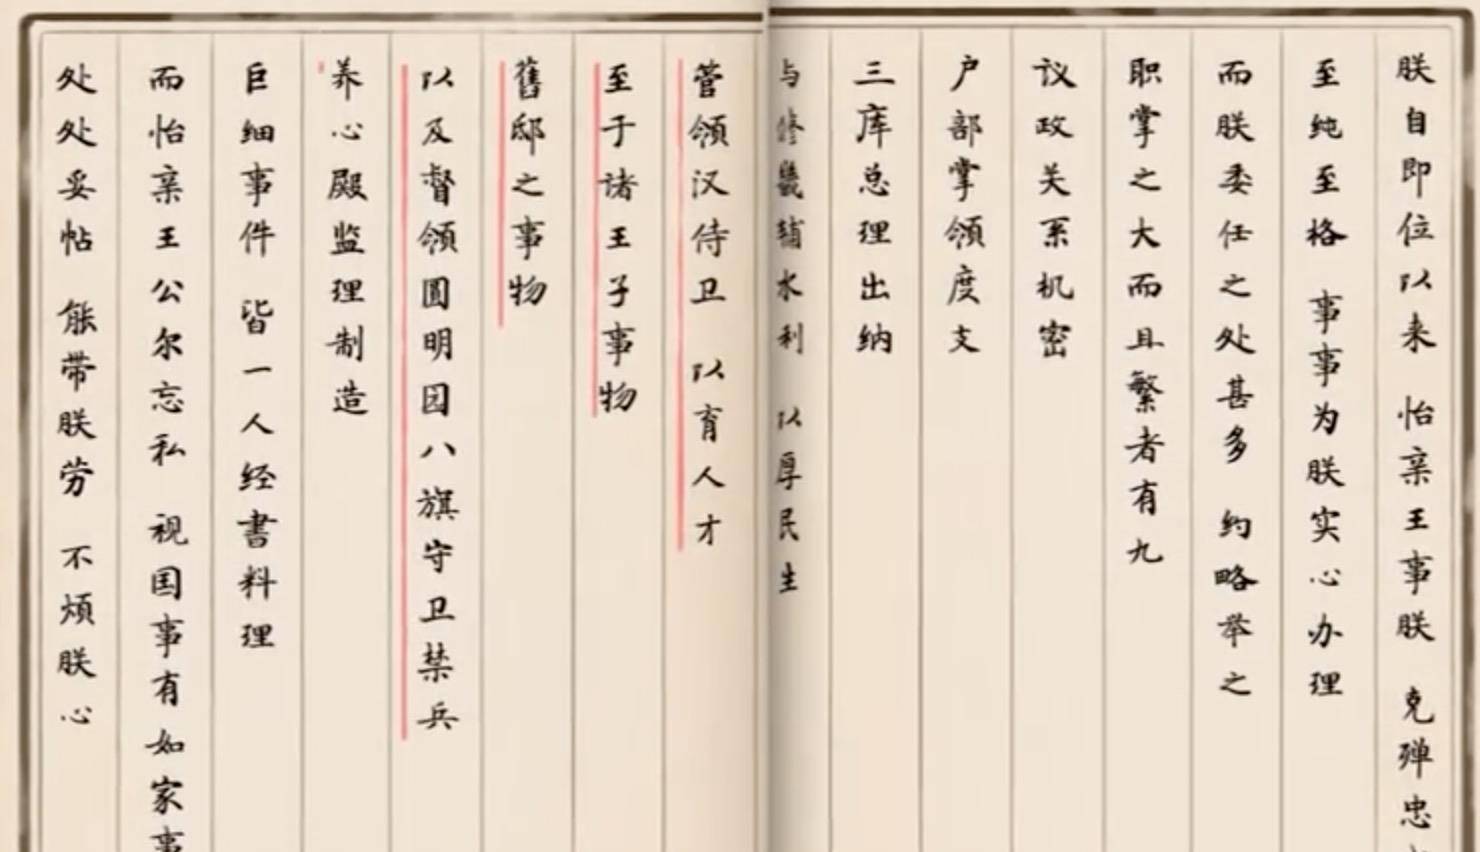 朕自即位以来 怡亲王事朕 克殚忠
至纯至格 事事为朕实心办理
而朕委任之处甚多 约略举之
职掌之大而且繁者有九
议政关系机密
户部掌领度支
三库总理出纳
与修畿辅水利 以厚民生
管领汉侍卫 以育人才
至于诸王子事物
舊邸之事物
以及督领圆明园八旗守卫禁兵
养心殿监理制造
巨细事件 皆一人经書料理
而怡亲王公尔忘私 视国事有如家事
处处妥帖 能带朕劳 不烦朕心